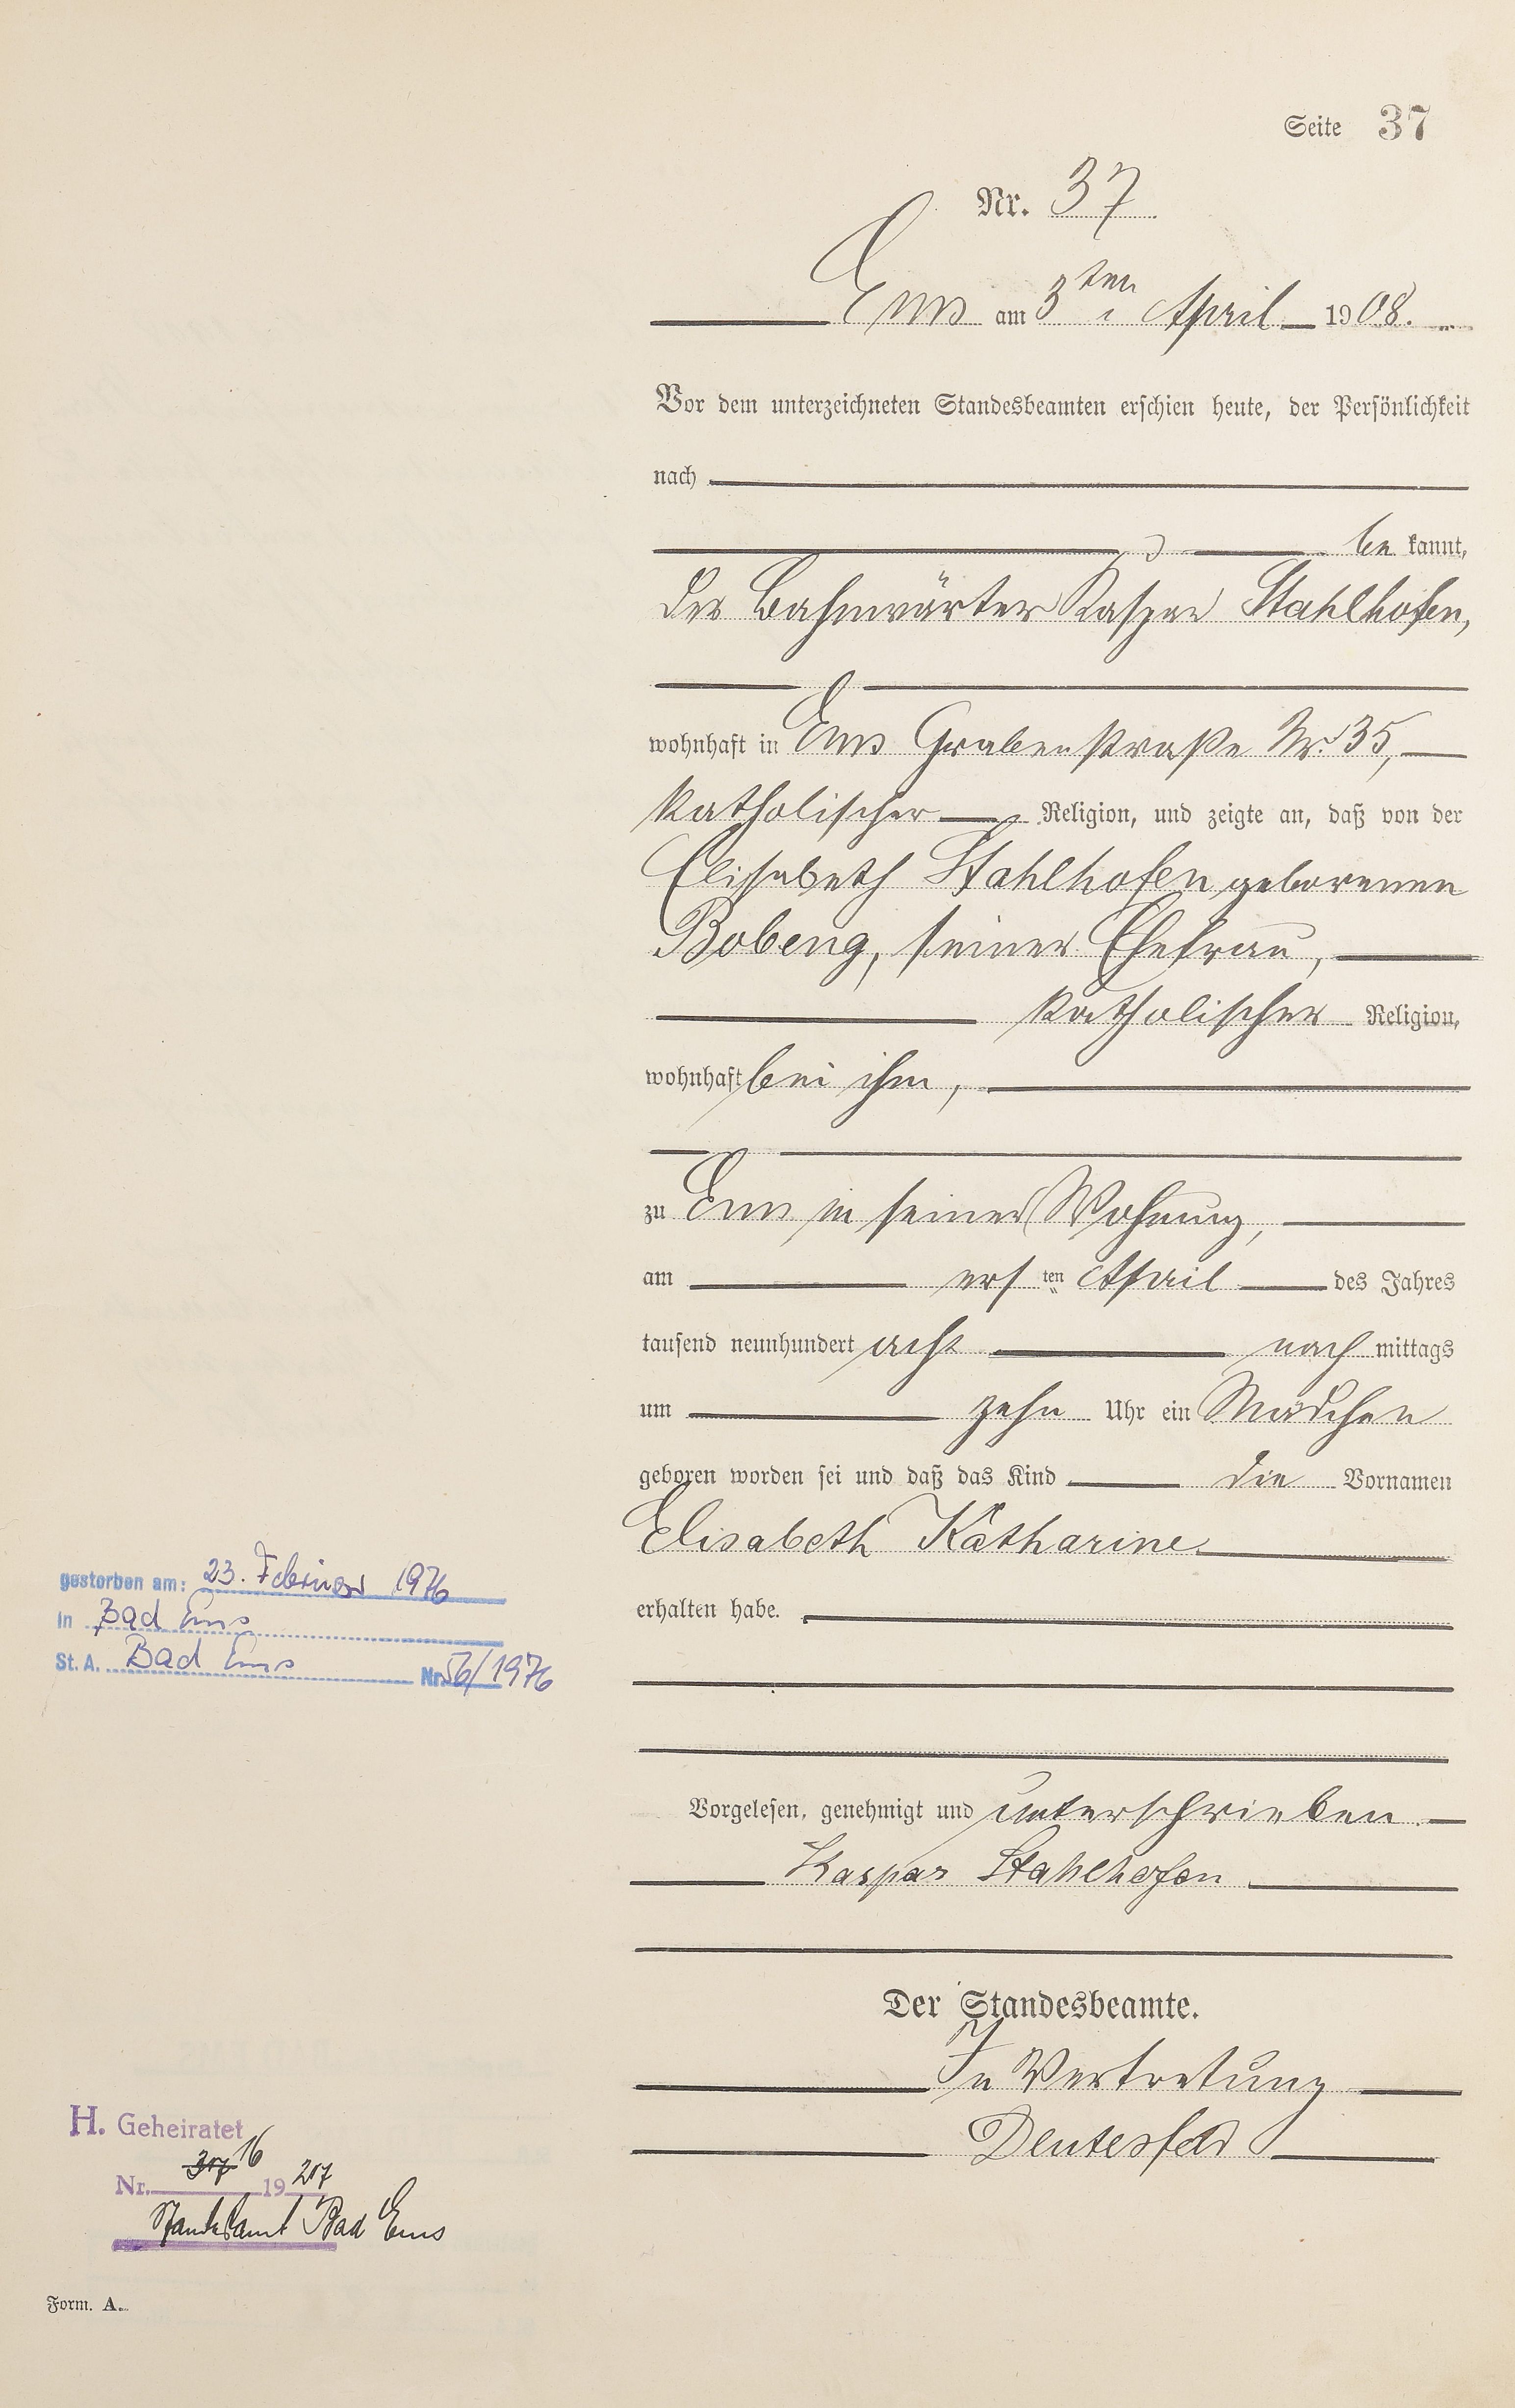 Seite 37
Nr. 37
Ems am 3ten April 1908.
Vor dem unterzeichneten Standesbeamten erschien heute, der Persönlichkeit
nach
be kannt,
der Bahnwärter Kaspar Stahlhofen,
wohnhaft in Ems Grabenstraße Nr. 35,
katholischer Religion, und zeigte an, daß von der
Elisabeth Stahlhofen geborenen
Bobeng, seiner Ehefrau,
katholischer Religion,
wohnhaft bei ihm,
zu Ems in seiner Wohnung,
am ersten April des Jahres
tausend neunhundert acht nach mittags
um zehn Uhr ein Mädchen
geboren worden sei und daß das Kind die Vornamen
Elisabeth Katharine
erhalten habe.
Vorgelesen, genehmigt und unterschrieben.
Kaspar Stahlhofen
Der Standesbeamte.
In Vertretung
gestorben am: 23. Februar 1976
in Bad Ems
St. A. Bad Ems Nr. 56/1976
H. Geheiratet
Nr. 16 1927
Standesamt Bad Ems
Form. A.